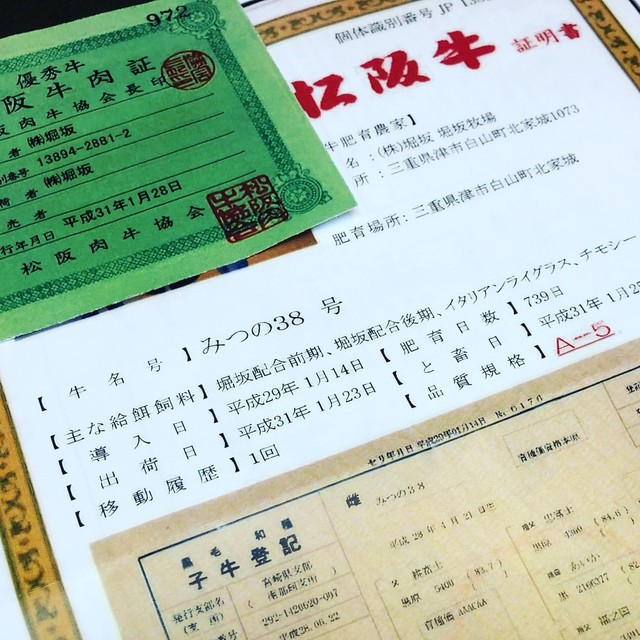 972
優秀牛
阪牛肉証
阪肉牛協会長印
者 ㈱堀坂
別番号 13894-2881-2
荷者 ㈱堀坂
売者
行年月日 平成31年1月28日
松阪肉牛協会
個体識別番号 JP 13
松阪牛 証明書
牛肥育農家】
名：(株)堀坂 堀坂牧場
所：三重県津市白山町北家城1073
肥育場所：三重県津市白山町北家城
【牛名号】みつの38 号
【主な給餌飼料】堀坂配合前期、堀坂配合後期、イタリアンライグラス、チモシー
【導入日】平成29年 1月14日
【肥育日数】739日
【出荷日】平成31年 1月23日
【と畜日】平成31年 1月25
【移動履歴】1回
【品質規格】A-5
セリ年月日 平成29年01月14日 № 6176
黒毛和種
子牛登記
雌 みつの38
平成 28 年 4 月 21 日生
発行支部名
(支所)
宮崎県支部
(南那珂支所)
番分
292-1420620-097
平成28.06.22